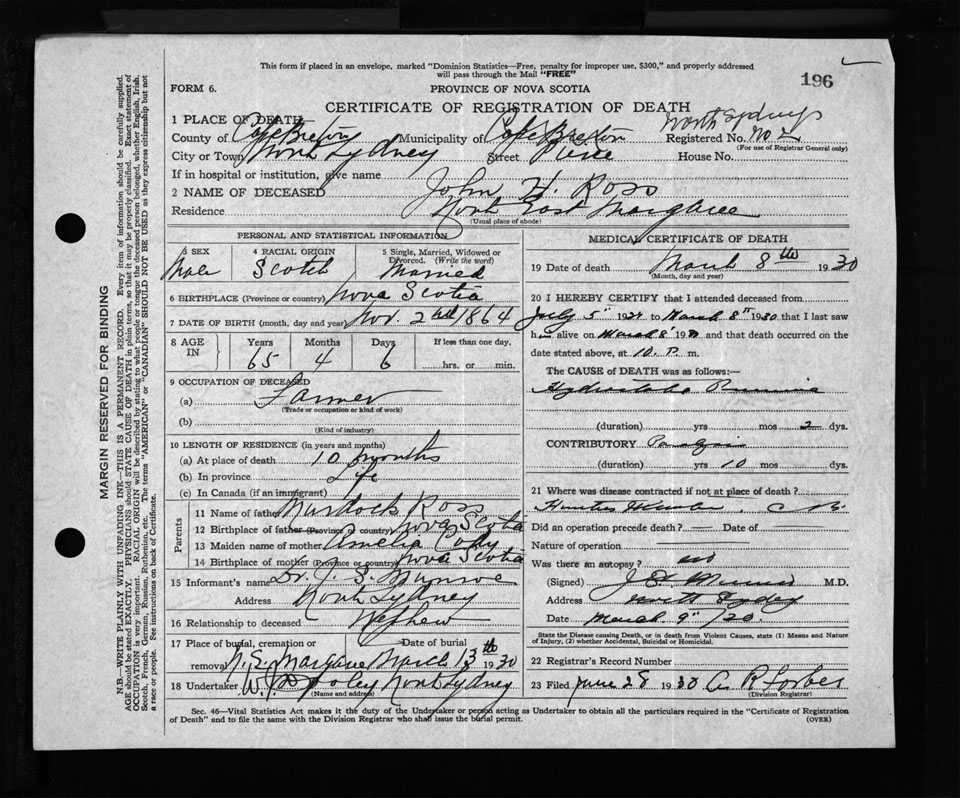 This form if placed in an envelope, marked "Dominion Statistics—Free, penalty for improper use, $300," and properly addressed
will pass through the Mail "FREE"
196
FORM 6.
PROVINCE OF NOVA SCOTIA
CERTIFICATE OF REGISTRATION OF DEATH
North Sydney
1 PLACE OF DEATH
County of Cape Breton Municipality of Cape Breton Registered No. No 2
(For use of Registrar General only)
City or Town North Sydney Street House No.
If in hospital or institution, give name
2 NAME OF DECEASED John H. Ross
Residence North East Margaree
(Usual place of abode)
PERSONAL AND STATISTICAL INFORMATION
3 SEX Male
4 RACIAL ORIGIN Scotch
5 Single, Married, Widowed or Divorced. (Write the word) Married
6 BIRTHPLACE (Province or country) Nova Scotia
7 DATE OF BIRTH (month, day and year) Nov. 2nd 1864
8 AGE IN Years Months Days If less than one day,
65 4 6 hrs. or min.
9 OCCUPATION OF DECEASED
(a) Farmer
(Trade or occupation or kind of work)
(b)
(Kind of industry)
10 LENGTH OF RESIDENCE (in years and months)
(a) At place of death 10 months
(b) In province Life
(c) In Canada (if an immigrant)
Parents
11 Name of father Murdock Ross
12 Birthplace of father (Province or country) Nova Scotia
13 Maiden name of mother Amelia
14 Birthplace of mother (Province or country) Nova Scotia
15 Informant's name Dr. J. S. Munroe
Address North Sydney
16 Relationship to deceased Nephew
17 Place of burial, cremation or Date of burial
removal N. E. Margaree March 13th 1930
18 Undertaker W. North Sydney
(Name and address)
MEDICAL CERTIFICATE OF DEATH
19 Date of death March 8th 1930
(Month, day and year)
20 I HEREBY CERTIFY that I attended deceased from
July 5" 1929 to March 8" 1930 that I last saw
him alive on March 8' 1930 and that death occurred on the
date stated above, at 10. P. m.
The CAUSE of DEATH was as follows:—
(duration) yrs mos 2 dys.
CONTRIBUTORY
(duration) yrs 10 mos dys.
21 Where was disease contracted if not at place of death?
C B.
Did an operation precede death? — Date of
Nature of operation
Was there an autopsy? no
(Signed) M.D.
Address North Sydney
Date March 9" /30.
State the Disease causing Death, or in death from Violent Causes, state (1) Means and Nature
of Injury, (2) whether Accidental, Suicidal or Homicidal.
22 Registrar's Record Number
23 Filed June 28 1930 A. R. Forbes
(Division Registrar)
Sec. 46—Vital Statistics Act makes it the duty of the Undertaker or person acting as Undertaker to obtain all the particulars required in the "Certificate of Registration
of Death" and to file the same with the Division Registrar who shall issue the burial permit.
(OVER)
MARGIN RESERVED FOR BINDING
N.B.—WRITE PLAINLY WITH UNFADING INK—THIS IS A PERMANENT RECORD. Every item of information should be carefully supplied.
AGE should be stated EXACTLY. PHYSICIANS should STATE CAUSE OF DEATH in plain terms, so that it may be properly classified. Exact statement of
OCCUPATION is very important. RACIAL ORIGIN will be described by stating to what people or tongue the deceased person belonged, whether English, Irish,
Scotch, French, German, Russian, Ruthenian, etc. The terms "AMERICAN" or "CANADIAN" SHOULD NOT BE USED as they express citizenship but not
a race or people. See instructions on back of Certificate.